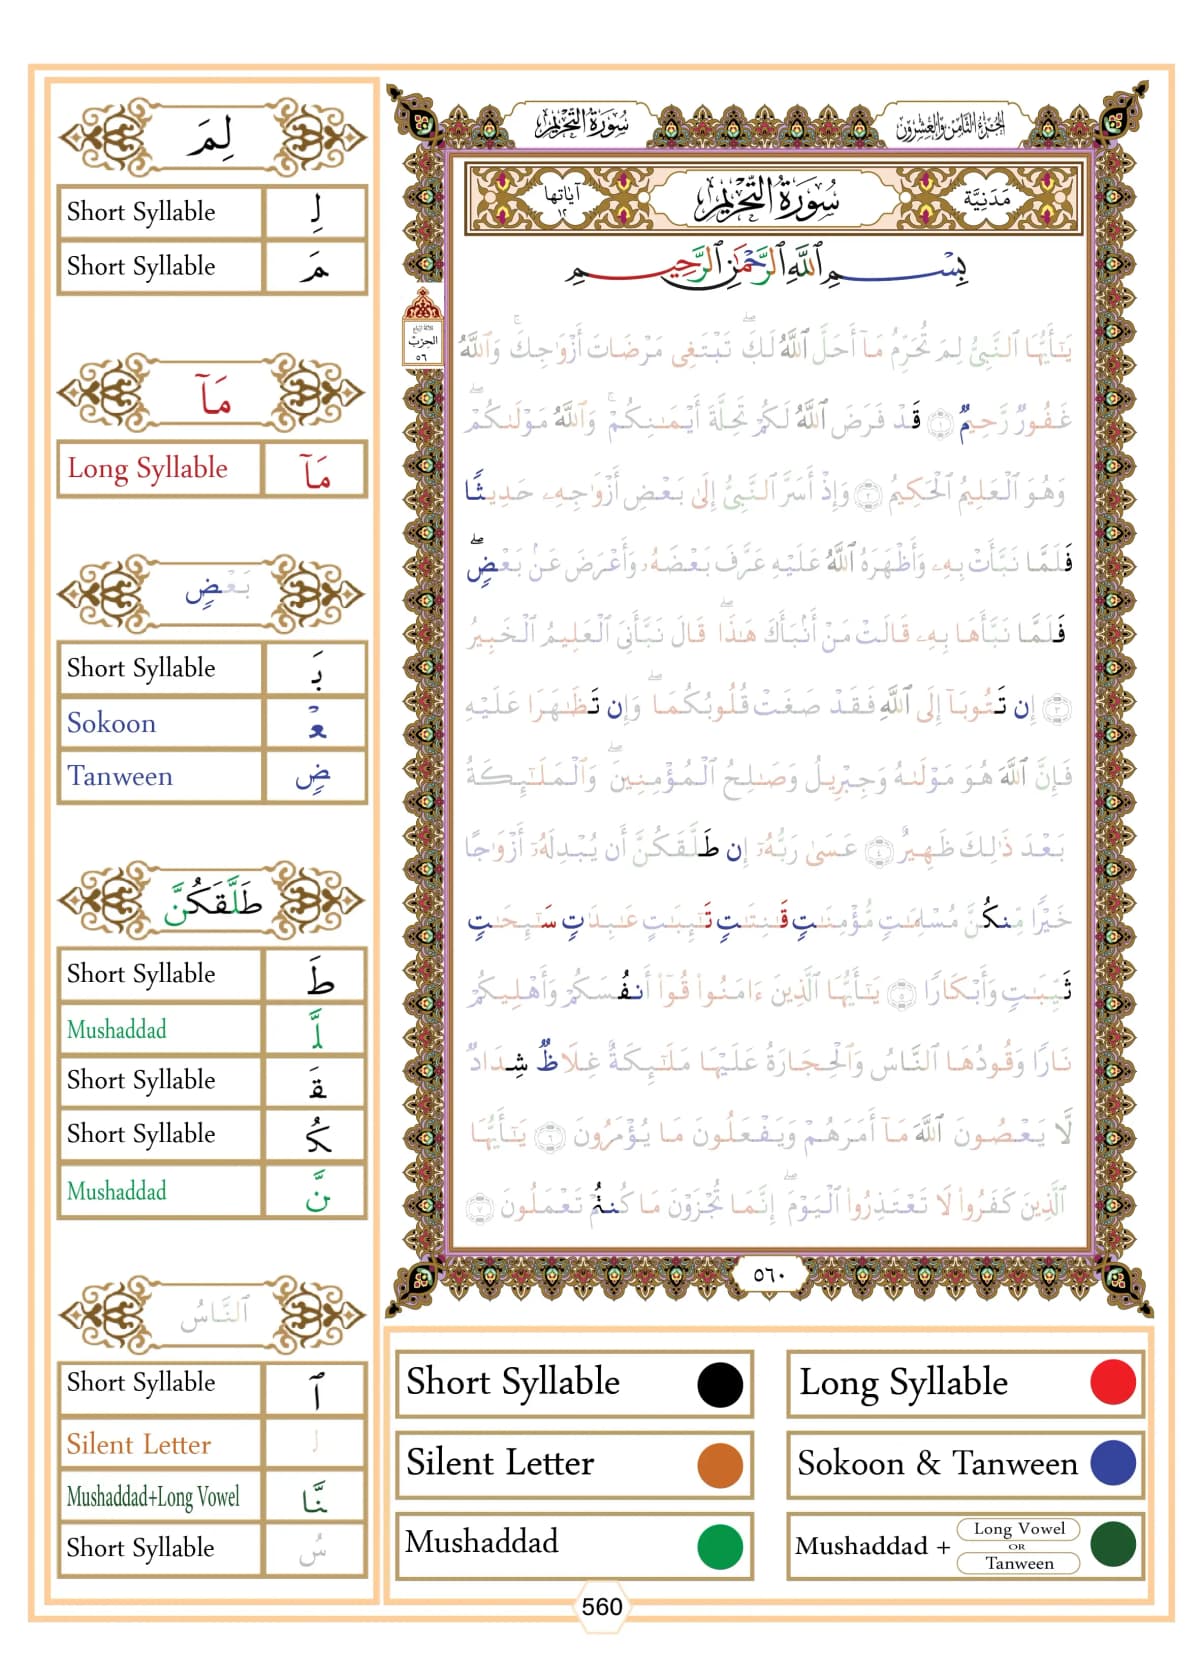 سُورَةُ التَّحْرِيمِ
الجُزْءُ الثَّامِنُ وَالعِشْرُونَ
لِمَ
Short Syllable لِـ
Short Syllable مَـ
مَآ
Long Syllable مَآ
بَعْضٍ
Short Syllable بَـ
Sokoon ـعْـ
Tanween ـضٍ
طَلَّقَكُنَّ
Short Syllable طَـ
Mushaddad ـلَّـ
Short Syllable ـقَـ
Short Syllable ـكُـ
Mushaddad ـنَّ
ٱلنَّاسُ
Short Syllable ٱ
Silent Letter ل
Mushaddad+Long Vowel نَّا
Short Syllable سُ
مَدَنِيَّة
سُورَةُ التَّحْرِيمِ
آيَاتُهَا ١٢
بِسْمِ ٱللَّهِ ٱلرَّحْمَٰنِ ٱلرَّحِيمِ
الحِزْبُ ٥٦
يَٰٓأَيُّهَا ٱلنَّبِىُّ لِمَ تُحَرِّمُ مَآ أَحَلَّ ٱللَّهُ لَكَ ۖ تَبْتَغِى مَرْضَاتَ أَزْوَٰجِكَ ۚ وَٱللَّهُ
غَفُورٌ رَّحِيمٌ ١ قَدْ فَرَضَ ٱللَّهُ لَكُمْ تَحِلَّةَ أَيْمَٰنِكُمْ ۚ وَٱللَّهُ مَوْلَىٰكُمْ ۖ
وَهُوَ ٱلْعَلِيمُ ٱلْحَكِيمُ ٢ وَإِذْ أَسَرَّ ٱلنَّبِىُّ إِلَىٰ بَعْضِ أَزْوَٰجِهِۦ حَدِيثًا
فَلَمَّا نَبَّأَتْ بِهِۦ وَأَظْهَرَهُ ٱللَّهُ عَلَيْهِ عَرَّفَ بَعْضَهُۥ وَأَعْرَضَ عَنۢ بَعْضٍ ۖ
فَلَمَّا نَبَّأَهَا بِهِۦ قَالَتْ مَنْ أَنۢبَأَكَ هَٰذَا ۖ قَالَ نَبَّأَنِىَ ٱلْعَلِيمُ ٱلْخَبِيرُ
٣ إِن تَتُوبَآ إِلَى ٱللَّهِ فَقَدْ صَغَتْ قُلُوبُكُمَا ۖ وَإِن تَظَٰهَرَا عَلَيْهِ
فَإِنَّ ٱللَّهَ هُوَ مَوْلَىٰهُ وَجِبْرِيلُ وَصَٰلِحُ ٱلْمُؤْمِنِينَ ۖ وَٱلْمَلَٰٓئِكَةُ
بَعْدَ ذَٰلِكَ ظَهِيرٌ ٤ عَسَىٰ رَبُّهُۥٓ إِن طَلَّقَكُنَّ أَن يُبْدِلَهُۥٓ أَزْوَٰجًا
خَيْرًا مِّنكُنَّ مُسْلِمَٰتٍ مُّؤْمِنَٰتٍ قَٰنِتَٰتٍ تَٰٓئِبَٰتٍ عَٰبِدَٰتٍ سَٰٓئِحَٰتٍ
ثَيِّبَٰتٍ وَأَبْكَارًا ٥ يَٰٓأَيُّهَا ٱلَّذِينَ ءَامَنُوا۟ قُوٓا۟ أَنفُسَكُمْ وَأَهْلِيكُمْ
نَارًا وَقُودُهَا ٱلنَّاسُ وَٱلْحِجَارَةُ عَلَيْهَا مَلَٰٓئِكَةٌ غِلَاظٌ شِدَادٌ
لَّا يَعْصُونَ ٱللَّهَ مَآ أَمَرَهُمْ وَيَفْعَلُونَ مَا يُؤْمَرُونَ ٦ يَٰٓأَيُّهَا
ٱلَّذِينَ كَفَرُوا۟ لَا تَعْتَذِرُوا۟ ٱلْيَوْمَ ۖ إِنَّمَا تُجْزَوْنَ مَا كُنتُمْ تَعْمَلُونَ ٧
٥٦٠
Short Syllable
Long Syllable
Silent Letter
Sokoon & Tanween
Mushaddad
Mushaddad + Long Vowel OR Tanween
560